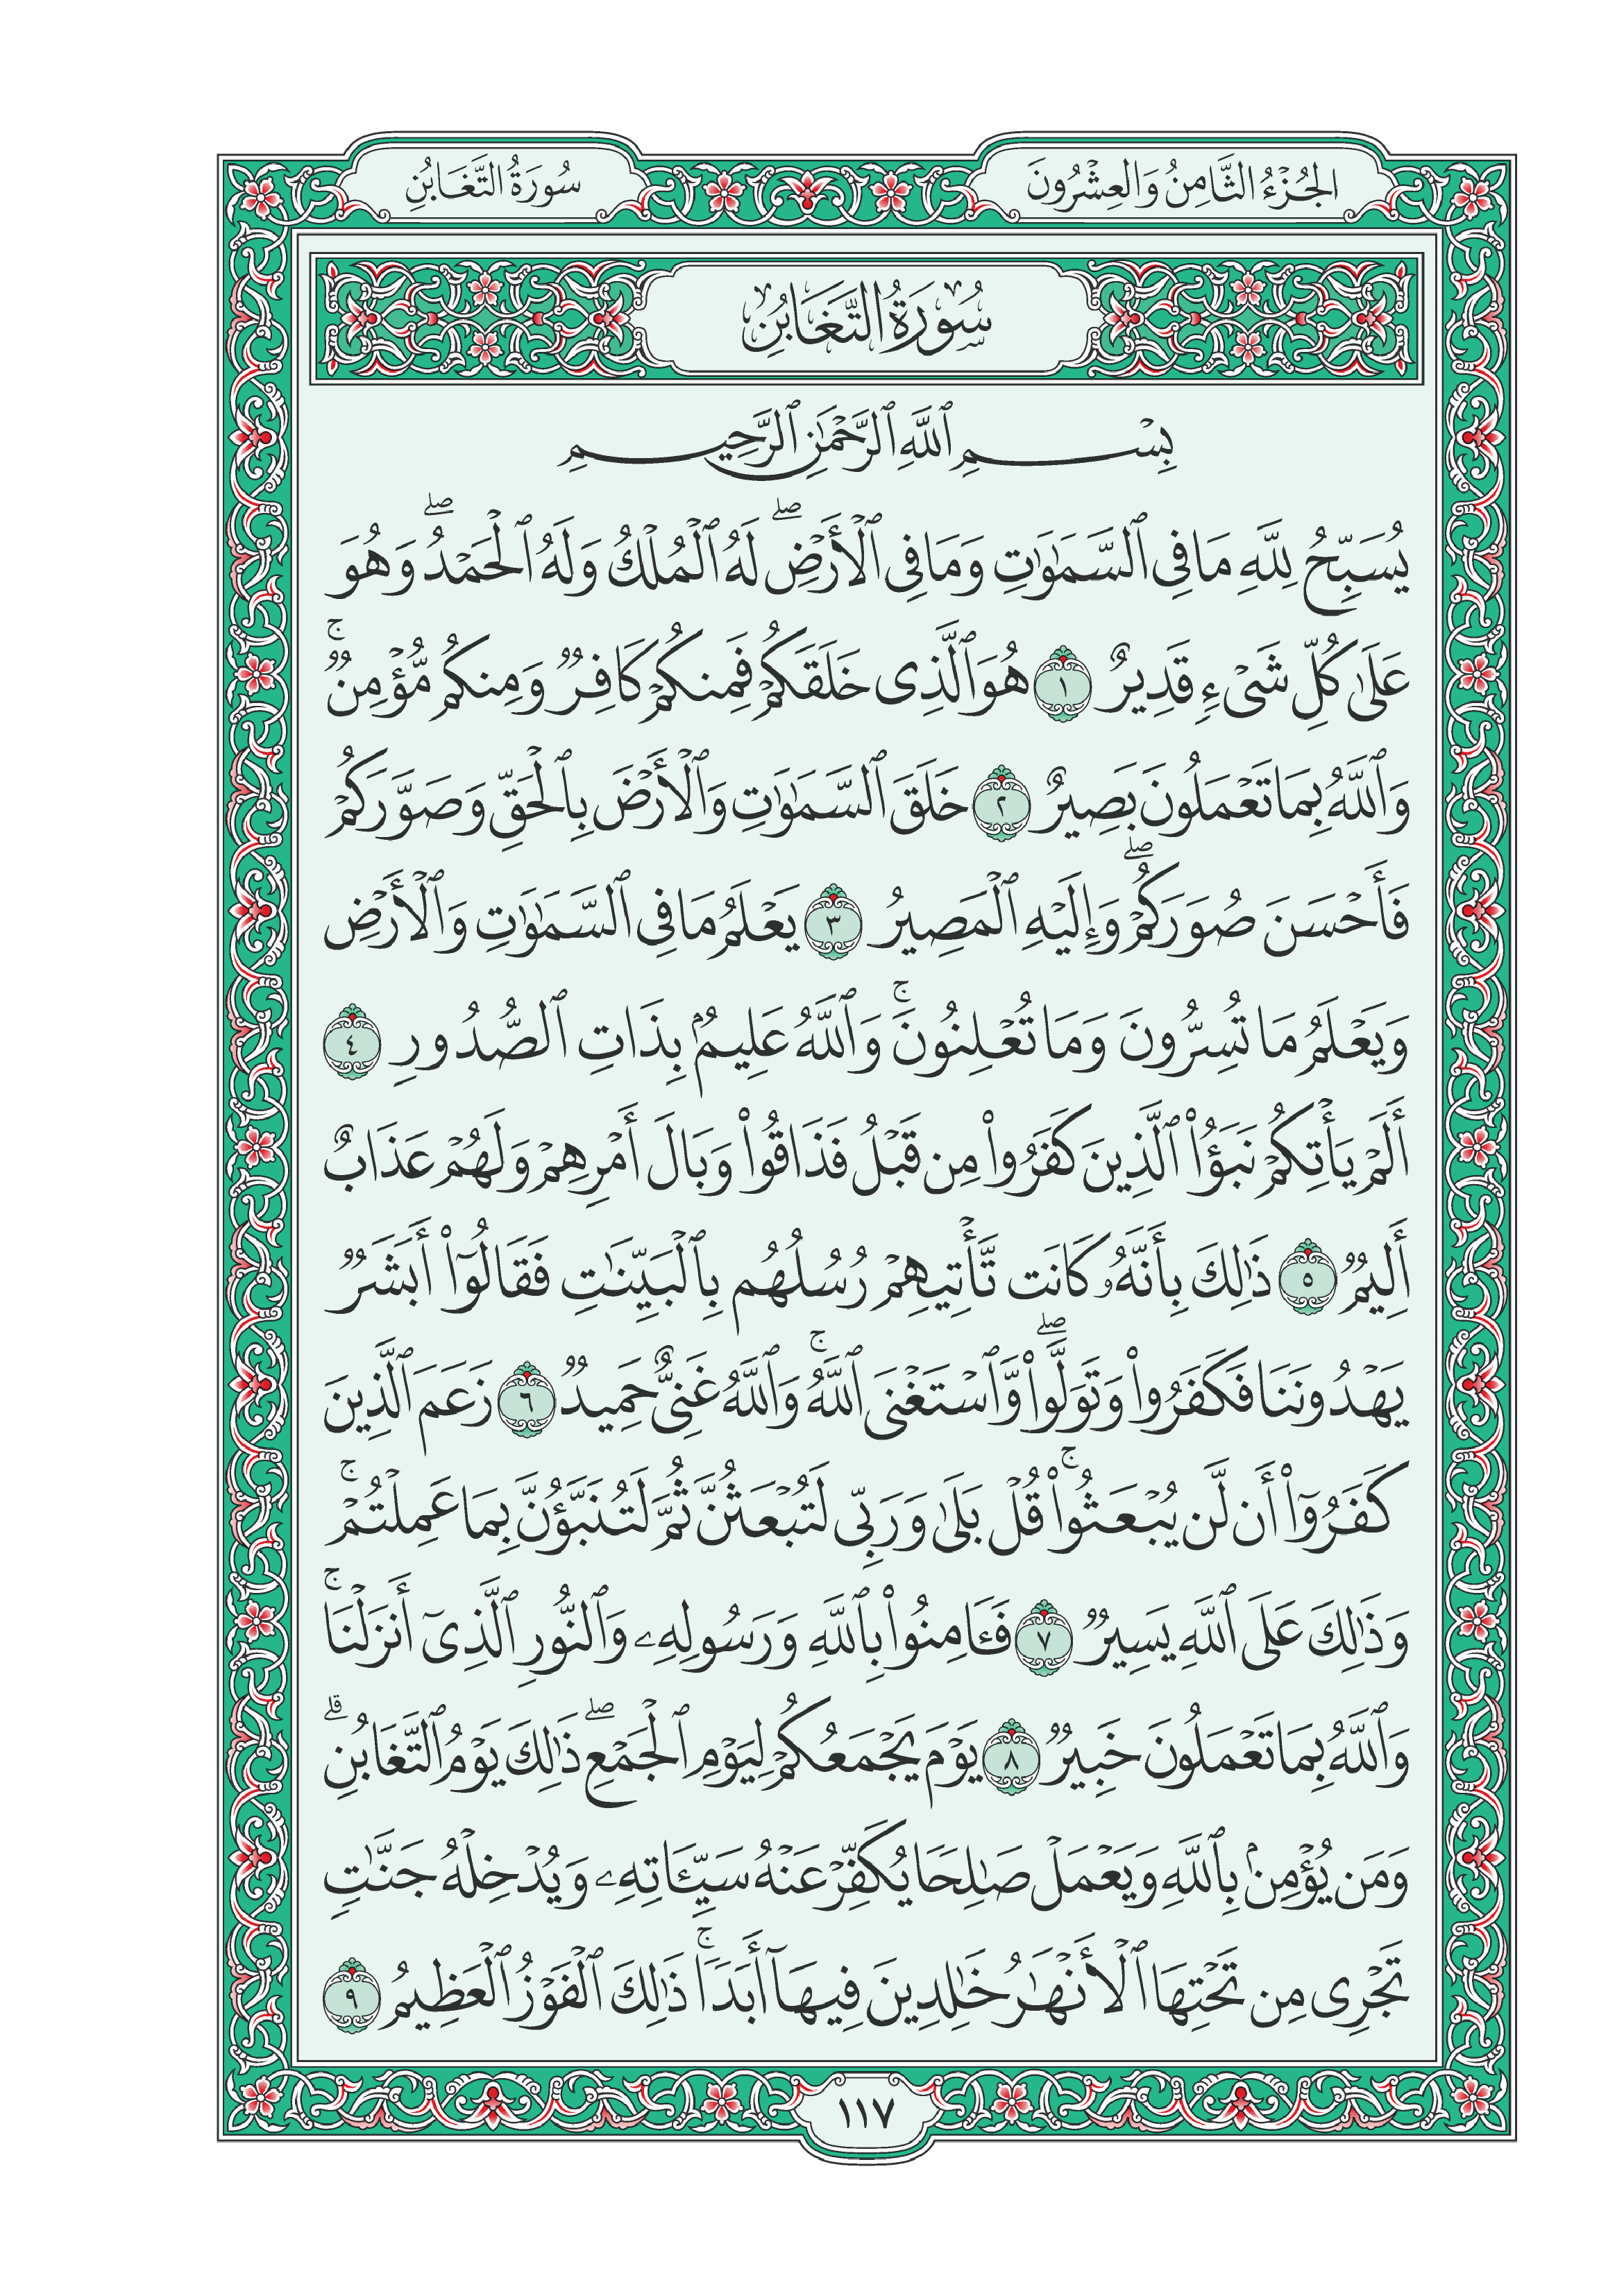 الجُزْءُ الثَّامِنُ وَالعِشْرُونَ
سُورَةُ التَّغَابُنِ
سُورَةُ التَّغَابُنِ
بِسْمِ ٱللَّهِ ٱلرَّحْمَٰنِ ٱلرَّحِيمِ
يُسَبِّحُ لِلَّهِ مَا فِي ٱلسَّمَٰوَٰتِ وَمَا فِي ٱلْأَرْضِۖ لَهُ ٱلْمُلْكُ وَلَهُ ٱلْحَمْدُۖ وَهُوَ
عَلَىٰ كُلِّ شَىْءٍ قَدِيرٌ ١ هُوَ ٱلَّذِى خَلَقَكُمْ فَمِنكُمْ كَافِرٌ وَمِنكُم مُّؤْمِنٌۚ
وَٱللَّهُ بِمَا تَعْمَلُونَ بَصِيرٌ ٢ خَلَقَ ٱلسَّمَٰوَٰتِ وَٱلْأَرْضَ بِٱلْحَقِّ وَصَوَّرَكُمْ
فَأَحْسَنَ صُوَرَكُمْۖ وَإِلَيْهِ ٱلْمَصِيرُ ٣ يَعْلَمُ مَا فِي ٱلسَّمَٰوَٰتِ وَٱلْأَرْضِ
وَيَعْلَمُ مَا تُسِرُّونَ وَمَا تُعْلِنُونَۚ وَٱللَّهُ عَلِيمٌۢ بِذَاتِ ٱلصُّدُورِ ٤
أَلَمْ يَأْتِكُمْ نَبَؤُا۟ ٱلَّذِينَ كَفَرُوا۟ مِن قَبْلُ فَذَاقُوا۟ وَبَالَ أَمْرِهِمْ وَلَهُمْ عَذَابٌ
أَلِيمٌ ٥ ذَٰلِكَ بِأَنَّهُۥ كَانَت تَّأْتِيهِمْ رُسُلُهُم بِٱلْبَيِّنَٰتِ فَقَالُوٓا۟ أَبَشَرٌ
يَهْدُونَنَا فَكَفَرُوا۟ وَتَوَلَّوا۟ۖ وَّٱسْتَغْنَى ٱللَّهُۚ وَٱللَّهُ غَنِىٌّ حَمِيدٌ ٦ زَعَمَ ٱلَّذِينَ
كَفَرُوٓا۟ أَن لَّن يُبْعَثُوا۟ۚ قُلْ بَلَىٰ وَرَبِّى لَتُبْعَثُنَّ ثُمَّ لَتُنَبَّؤُنَّ بِمَا عَمِلْتُمْۚ
وَذَٰلِكَ عَلَى ٱللَّهِ يَسِيرٌ ٧ فَـَٔامِنُوا۟ بِٱللَّهِ وَرَسُولِهِۦ وَٱلنُّورِ ٱلَّذِىٓ أَنزَلْنَاۚ
وَٱللَّهُ بِمَا تَعْمَلُونَ خَبِيرٌ ٨ يَوْمَ يَجْمَعُكُمْ لِيَوْمِ ٱلْجَمْعِۖ ذَٰلِكَ يَوْمُ ٱلتَّغَابُنِۗ
وَمَن يُؤْمِنۢ بِٱللَّهِ وَيَعْمَلْ صَٰلِحًا يُكَفِّرْ عَنْهُ سَيِّـَٔاتِهِۦ وَيُدْخِلْهُ جَنَّٰتٍ
تَجْرِى مِن تَحْتِهَا ٱلْأَنْهَٰرُ خَٰلِدِينَ فِيهَآ أَبَدًاۚ ذَٰلِكَ ٱلْفَوْزُ ٱلْعَظِيمُ ٩
١١٧